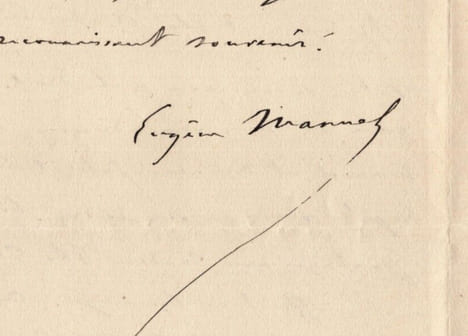 reconnaissant souvenir.
Eugène Manuel